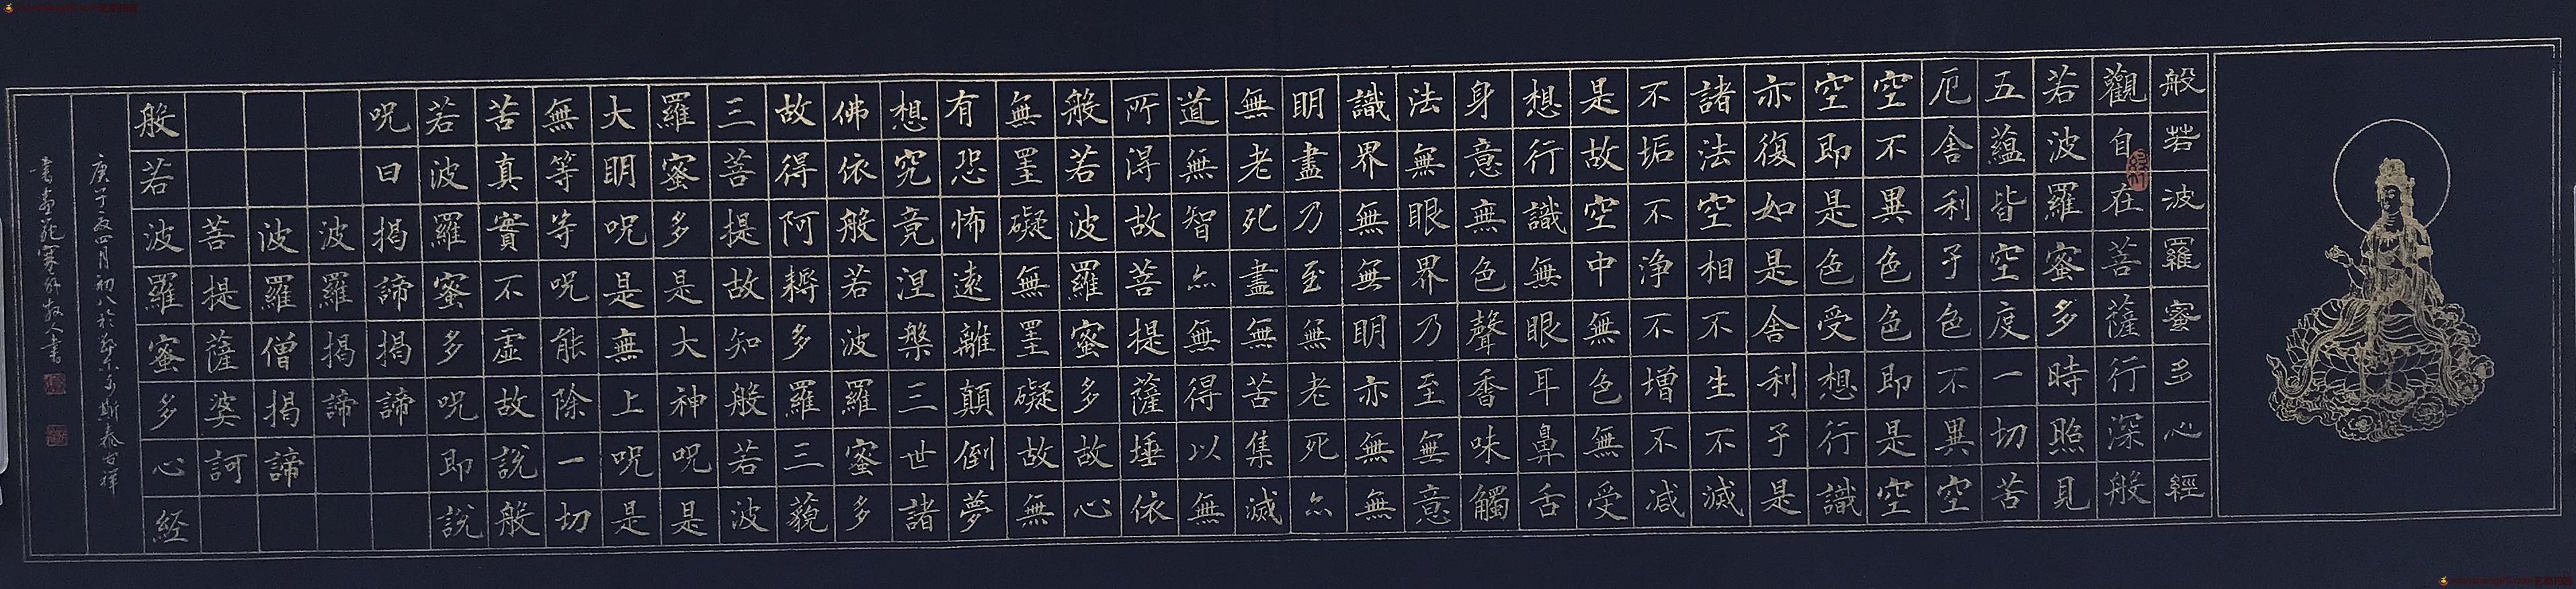 般若波羅蜜多心經
觀自在菩薩行深般
若波羅蜜多時照見
五蘊皆空度一切苦
厄舍利子色不異空
空不異色色即是空
空即是色受想行識
亦復如是舍利子是
諸法空相不生不滅
不垢不淨不增不减
是故空中無色無受
想行識無眼耳鼻舌
身意無色聲香味觸
法無眼界乃至無意
識界無無明亦無無
明盡乃至無老死亦
無老死盡無苦集滅
道無智亦無得以無
所得故菩提薩埵依
般若波羅蜜多故心
無罣礙無罣礙故無
有恐怖遠離顛倒夢
想究竟涅槃三世諸
佛依般若波羅蜜多
故得阿耨多羅三藐
三菩提故知般若波
羅蜜多是大神呪是
大明呪是無上呪是
無等等呪能除一切
苦真實不虛故說般
若波羅蜜多呪即說
呪曰揭諦揭諦
波羅揭諦
波羅僧揭諦
菩提薩婆訶
般若波羅蜜多心経
庚子年四月初八於泰吉祥
書畫苑散人書